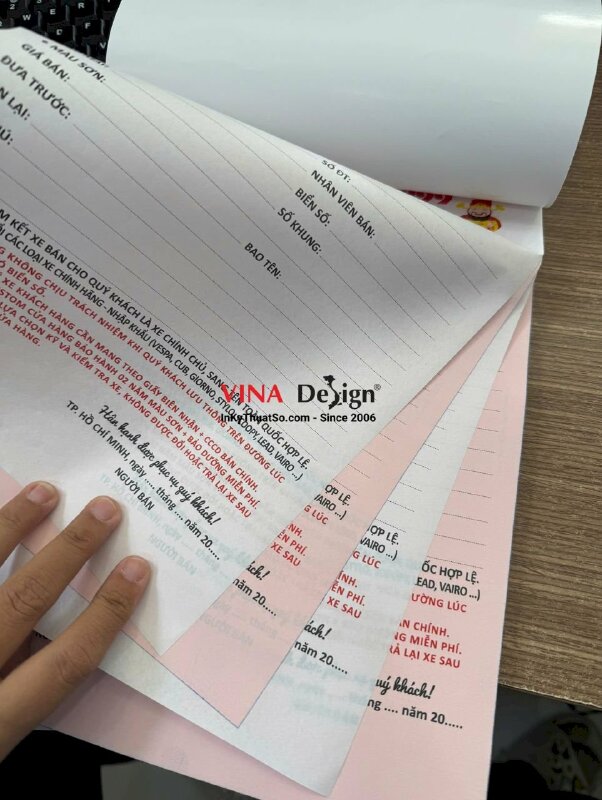 MÀU SƠN:
GIÁ BÁN:
ĐƯA TRƯỚC:
N LẠI:
Ú:
SỐ ĐT:
NHÂN VIÊN BÁN:
BIỂN SỐ:
SỐ KHUNG:
BAO TÊN:
M KẾT XE BÁN CHO QUÝ KHÁCH LÀ XE CHÍNH CHỦ, SANG TÊN TOÀN QUỐC HỢP LỆ.
I CÁC LOẠI XE CHÍNH HÃNG - NHẬP KHẨU (VESPA, CUB, GIORNO, STYLO, SCOOPY, LEAD, VAIRO ...)
G KHÔNG CHỊU TRÁCH NHIỆM KHI QUÝ KHÁCH LƯU THÔNG TRÊN ĐƯỜNG LÚC
Ó BIỂN SỐ.
XE KHÁCH HÀNG CẦN MANG THEO GIẤY BIÊN NHẬN + CCCD BẢN CHÍNH.
STOM CỬA HÀNG BẢO HÀNH 02 NĂM MÀU SƠN - BẢO DƯỠNG MIỄN PHÍ.
LỰA CHỌN KỸ VÀ KIỂM TRA XE, KHÔNG ĐƯỢC ĐỔI HOẶC TRẢ LẠI XE SAU
ỬA HÀNG.
Hân hạnh được phục vụ quý khách!
TP. HỒ CHÍ MINH, ngày .... tháng .... năm 20.....
NGƯỜI BÁN
VINA Design®
InKyThuatSo.com - Since 2006
HỢP LỆ.
VAIRO ...)
G LÚC
CHÍNH.
PHÍ.
XE SAU
ách!
năm 20.....
HỢP LỆ.
VAIRO ...)
NG LÚC
CHÍNH.
N PHÍ.
XE SAU
khách!
năm 20.....
UỐC HỢP LỆ.
LEAD, VAIRO ...)
ƯỜNG LÚC
ẢN CHÍNH.
NG MIỄN PHÍ.
RẢ LẠI XE SAU
quý khách!
ng .... năm 20.....